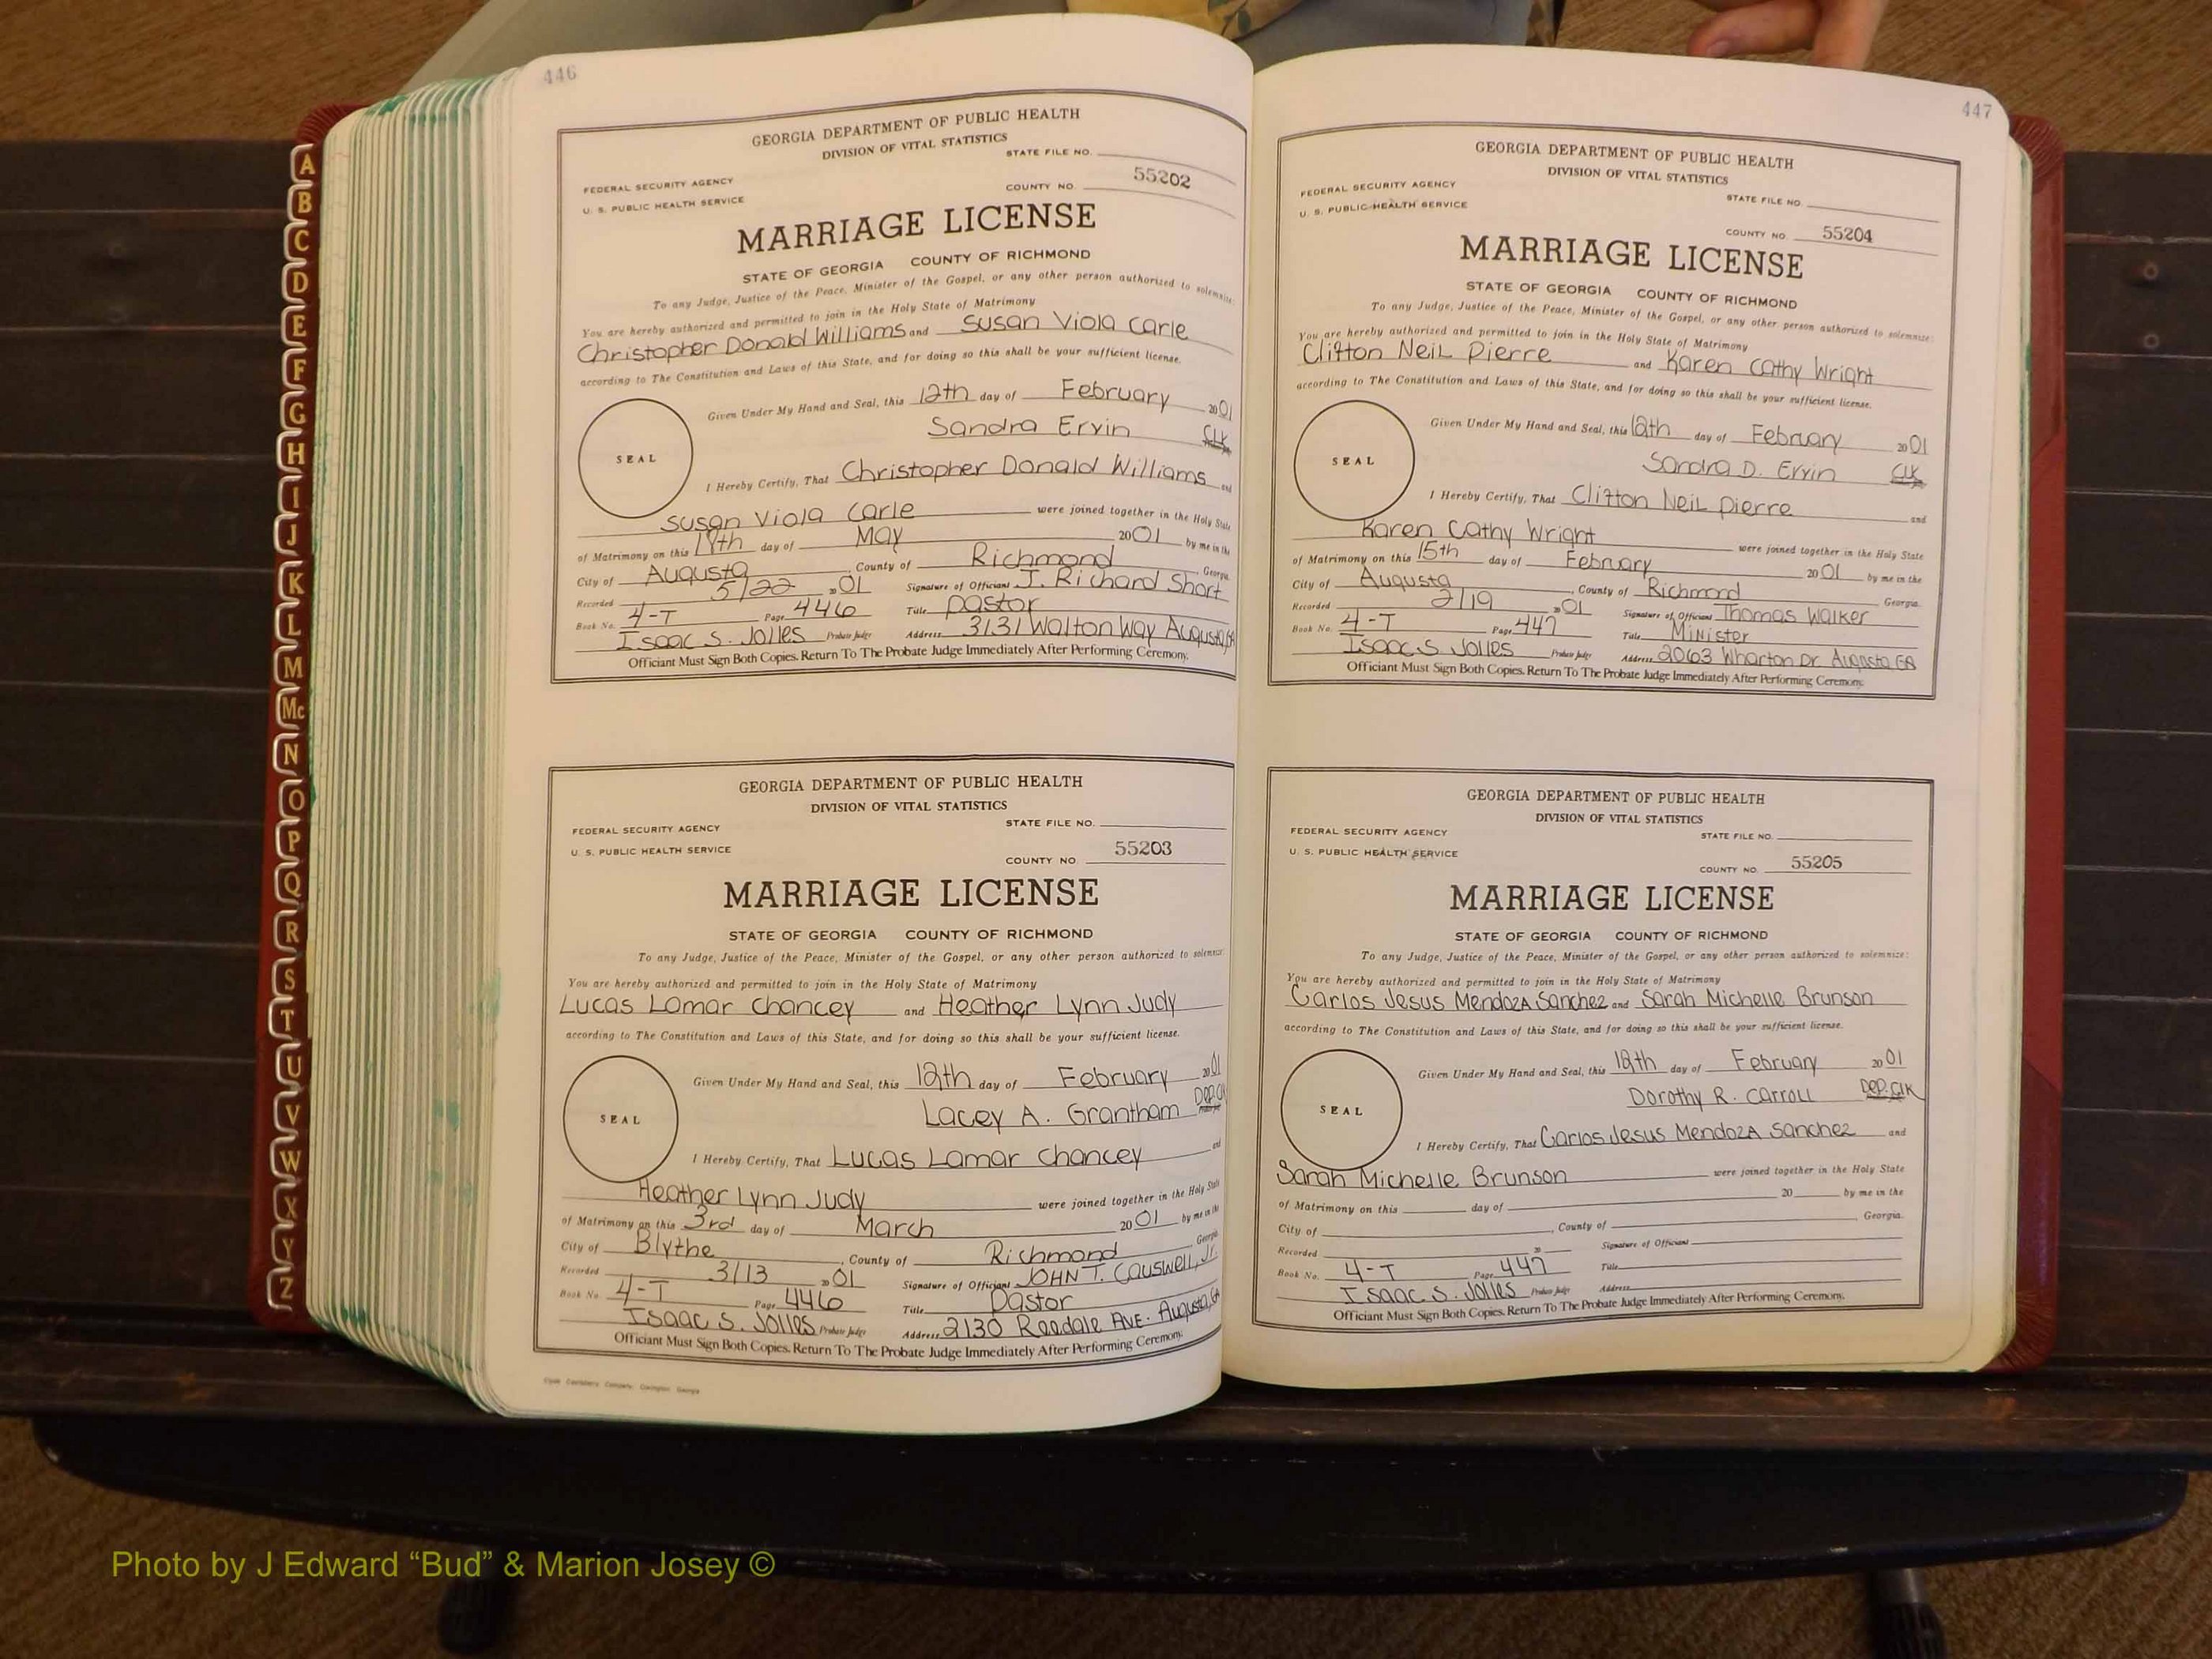 A
B
C
D
E
F
G
H
I
J
K
L
M
Mc
N
O
P
Q
R
S
T
U
V
W
X
Y
Z
446
GEORGIA DEPARTMENT OF PUBLIC HEALTH
DIVISION OF VITAL STATISTICS
STATE FILE NO.
FEDERAL SECURITY AGENCY
U. S. PUBLIC HEALTH SERVICE
COUNTY NO. 55202
MARRIAGE LICENSE
STATE OF GEORGIA COUNTY OF RICHMOND
To any Judge, Justice of the Peace, Minister of the Gospel, or any other person authorized to solemnize:
You are hereby authorized and permitted to join in the Holy State of Matrimony
Christopher Donald Williams and Susan Viola Carle
according to The Constitution and Laws of this State, and for doing so this shall be your sufficient license.
Given Under My Hand and Seal, this 12th day of February 2001
Sandra Ervin CLK
SEAL
I Hereby Certify, That Christopher Donald Williams and
Susan Viola Carle were joined together in the Holy State
of Matrimony on this day of May 2001 by me in the
City of Augusta, County of Richmond, Georgia.
Recorded 5/22 2001 Signature of Officiant J. Richard Short
Book No. 4-T Page 446 Title Pastor
Isaac S. Jolles Probate Judge Address 3131 Walton Way Augusta, GA
Officiant Must Sign Both Copies. Return To The Probate Judge Immediately After Performing Ceremony.
GEORGIA DEPARTMENT OF PUBLIC HEALTH
DIVISION OF VITAL STATISTICS
STATE FILE NO.
FEDERAL SECURITY AGENCY
U. S. PUBLIC HEALTH SERVICE
COUNTY NO. 55203
MARRIAGE LICENSE
STATE OF GEORGIA COUNTY OF RICHMOND
To any Judge, Justice of the Peace, Minister of the Gospel, or any other person authorized to solemnize:
You are hereby authorized and permitted to join in the Holy State of Matrimony
Lucas Lamar Chancey and Heather Lynn Judy
according to The Constitution and Laws of this State, and for doing so this shall be your sufficient license.
Given Under My Hand and Seal, this 12th day of February 2001
Lacey A. Grantham Dep. Clk
SEAL
I Hereby Certify, That Lucas Lamar Chancey and
Heather Lynn Judy were joined together in the Holy State
of Matrimony on this 3rd day of March 2001 by me in the
City of Blythe, County of Richmond, Georgia.
Recorded 3/13 2001 Signature of Officiant JOHN T. Causwell, Jr.
Book No. 4-T Page 446 Title Pastor
Isaac S. Jolles Probate Judge Address 2130 Roedale Ave. Augusta, GA
Officiant Must Sign Both Copies. Return To The Probate Judge Immediately After Performing Ceremony.
447
GEORGIA DEPARTMENT OF PUBLIC HEALTH
DIVISION OF VITAL STATISTICS
FEDERAL SECURITY AGENCY
STATE FILE NO.
U. S. PUBLIC HEALTH SERVICE
COUNTY NO. 55204
MARRIAGE LICENSE
STATE OF GEORGIA COUNTY OF RICHMOND
To any Judge, Justice of the Peace, Minister of the Gospel, or any other person authorized to solemnize:
You are hereby authorized and permitted to join in the Holy State of Matrimony
Clifton Neil Pierre and Karen Cathy Wright
according to The Constitution and Laws of this State, and for doing so this shall be your sufficient license.
Given Under My Hand and Seal, this 12th day of February 2001
Sandra D. Ervin CLK
SEAL
I Hereby Certify, That Clifton Neil Pierre and
Karen Cathy Wright were joined together in the Holy State
of Matrimony on this 15th day of February 2001 by me in the
City of Augusta, County of Richmond, Georgia.
Recorded 2/19 2001 Signature of Officiant Thomas Walker
Book No. 4-T Page 447 Title Minister
Isaac S Jolles Probate Judge Address 2063 Wharton Dr. Augusta GA
Officiant Must Sign Both Copies. Return To The Probate Judge Immediately After Performing Ceremony.
GEORGIA DEPARTMENT OF PUBLIC HEALTH
DIVISION OF VITAL STATISTICS
FEDERAL SECURITY AGENCY
STATE FILE NO.
U. S. PUBLIC HEALTH SERVICE
COUNTY NO. 55205
MARRIAGE LICENSE
STATE OF GEORGIA COUNTY OF RICHMOND
To any Judge, Justice of the Peace, Minister of the Gospel, or any other person authorized to solemnize:
You are hereby authorized and permitted to join in the Holy State of Matrimony
Carlos Jesus Mendoza Sanchez and Sarah Michelle Brunson
according to The Constitution and Laws of this State, and for doing so this shall be your sufficient license.
Given Under My Hand and Seal, this 12th day of February 2001
Dorothy R. Carroll Dep. Clk
SEAL
I Hereby Certify, That Carlos Jesus Mendoza Sanchez and
Sarah Michelle Brunson were joined together in the Holy State
of Matrimony on this day of 20 by me in the
City of , County of , Georgia.
Recorded 20 Signature of Officiant
Book No. 4-T Page 447 Title
Isaac S. Jolles Probate Judge Address
Officiant Must Sign Both Copies. Return To The Probate Judge Immediately After Performing Ceremony.
Photo by J Edward “Bud” & Marion Josey ©